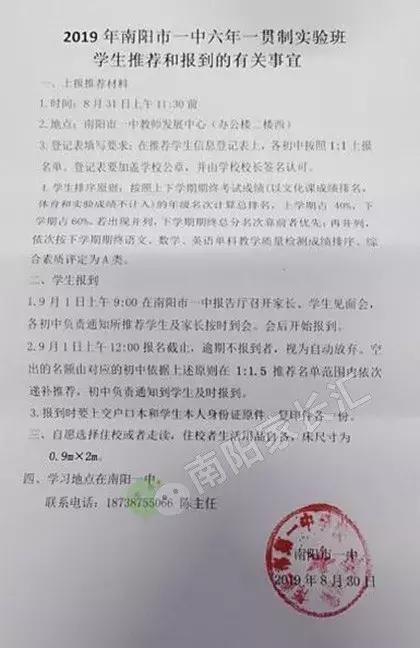 2019 年南阳市一中六年一贯制实验班
学生推荐和报到的有关事宜
一、上报推荐材料
1.时间：8 月 31 日上午 11:30 前
2.地点：南阳市一中教师发展中心（办公楼二楼西）
3.登记表填写要求：在推荐学生信息登记表上，各初中按照 1:1 上报
名单。登记表要加盖学校公章，并由学校校长签名认可。
4.学生排序原则：按照上下学期期终考试成绩(以文化课成绩排名，
体育和实验成绩不计入)的年级名次计算总排名，上学期占 40%，下
学期占 60%。若出现并列，下学期期终总分名次靠前者优先；再并列，
依次按下学期期终语文、数学、英语单科教学质量检测成绩排序、综
合素质评定为 A 类。
二、学生报到
1.9 月 1 日上午 9:00 在南阳市一中报告厅召开家长、学生见面会，
各初中负责通知所推荐学生及家长按时到会。会后开始报到。
2.9 月 1 日上午 12:00 报名截止，逾期不报到者，视为自动放弃。空
出的名额由对应的初中依据上述原则在 1:1.5 推荐名单范围内依次
递补推荐，初中负责通知到学生及时报到。
3.报到时要上交户口本和学生本人身份证原件、复印件各一份。
三、自愿选择住校或者走读，住校者生活用品自备，床尺寸为
0.9m×2m。
四、学习地点在南阳一中。
联系电话：18738755066 陈主任
南阳市一中
2019 年 8 月 30 日
南阳家长汇